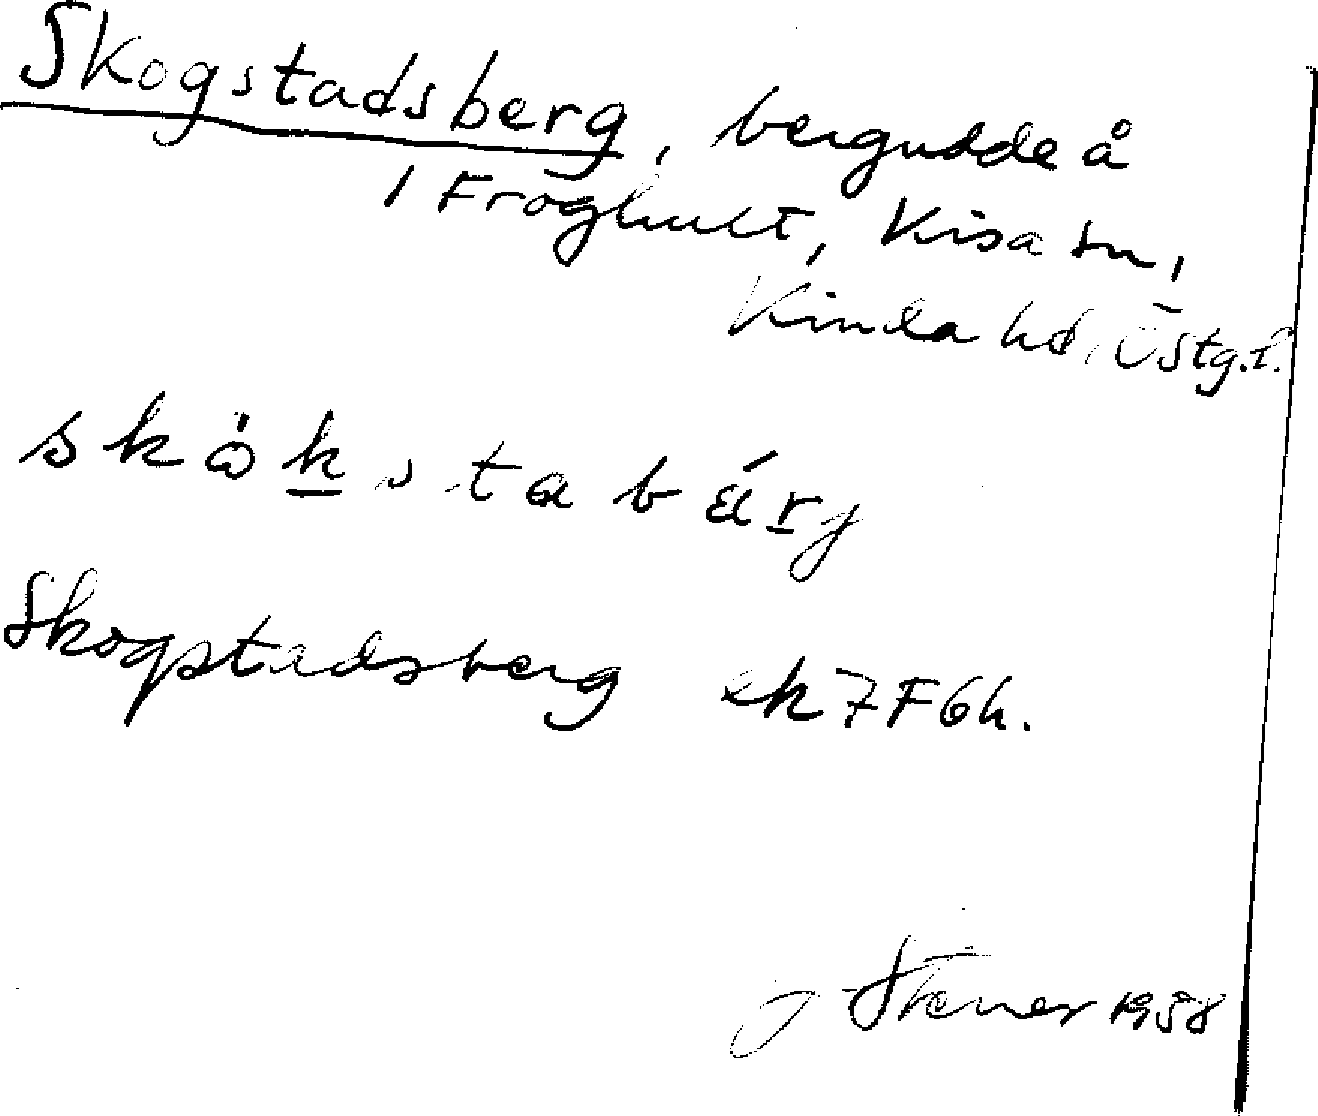 Skogstadsberg, bergudde å
1 Fröghult, Kisa sn,
Kinda hd, Östg.l.
skåkstabärj
Skogstadsberg ek 7F6h.
J Stener 1958